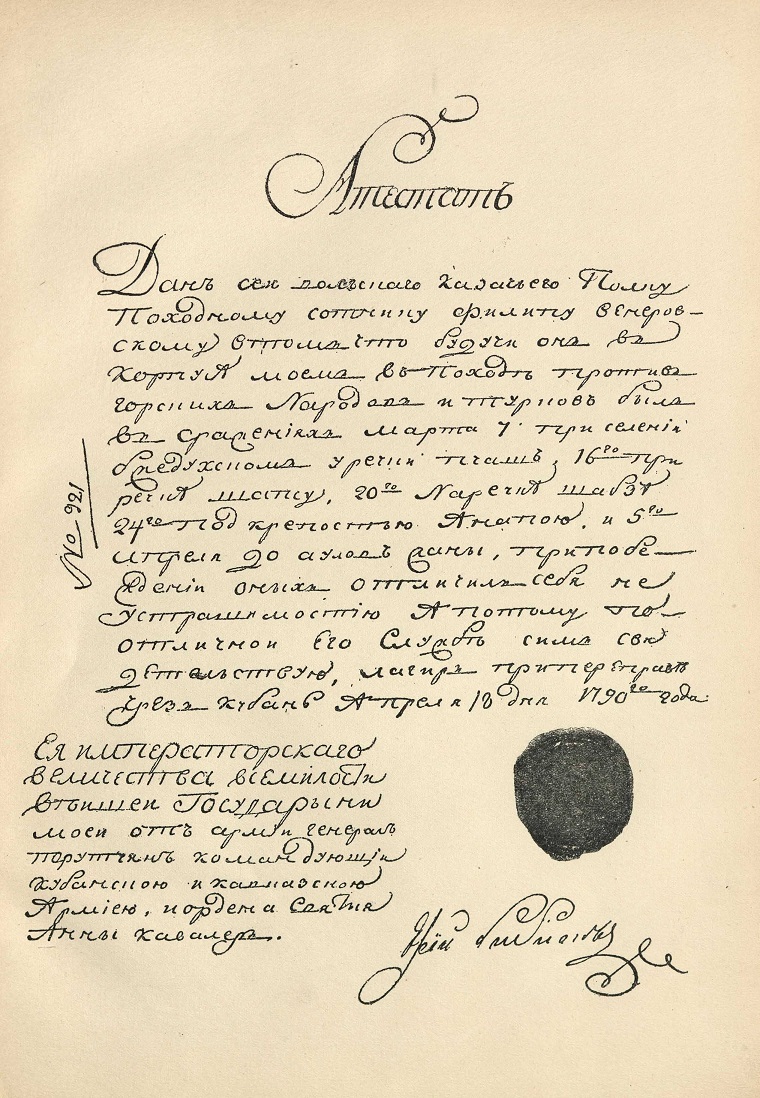 Атестатъ
Данъ сей волскаго казачьего Полку
Походному сотнику Филипу Венеров-
скому втомъ что будучи онъ въ
корпуѣ моемъ въ Походѣ противъ
горскихъ Народовъ и турковъ былъ
въ сражениіяхъ марта 7 при селеніи
бжедухскомъ уречки пчашъ, 16го при
речкѣ шапсу, 20го На речкѣ
24го под крепостью Анапою, и 5го
апреля до ауловъ , припобе-
жденіи оныхъ отличилъ себя не
устрашимостію А потому по
отличной Его Службѣ симъ сви
детельствую, лагирь припереправѣ
чрезъ кубань Апреля 18 дня 1790го года:
No 921
Ея императорскаго
величества всемилости
вѣишеи Государыни
моей отъ арміи генералъ
порутчикъ командующій
кубанскою и кавказскою
Арміею, и ордена Святыя
Анны кавалеръ.
Юрій бибиковъ